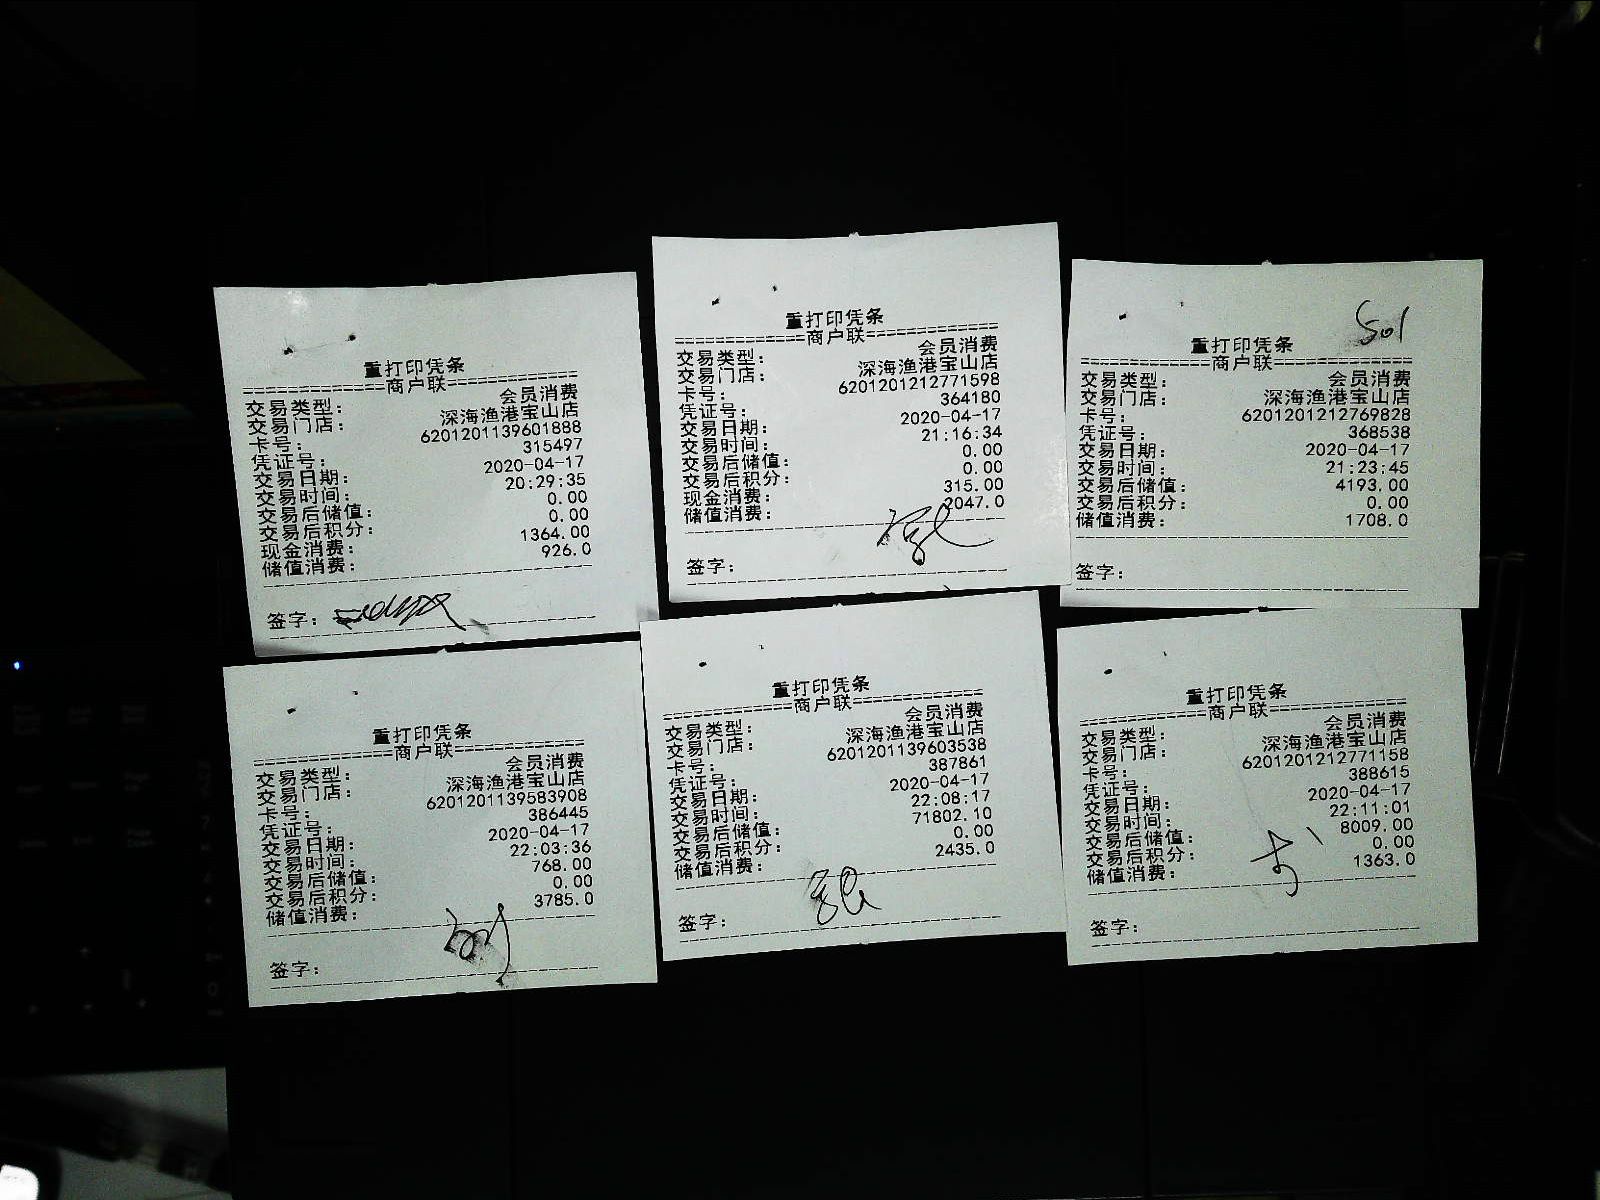 重打印凭条
==============商户联==============
交易类型： 会员消费
交易门店： 深海渔港宝山店
卡号： 6201201139601888
凭证号： 315497
交易日期： 2020-04-17
交易时间： 20:29:35
交易后储值： 0.00
交易后积分： 0.00
现金消费： 1364.00
储值消费： 926.0
签字：
重打印凭条
==============商户联==============
交易类型： 会员消费
交易门店： 深海渔港宝山店
卡号： 6201201212771598
凭证号： 364180
交易日期： 2020-04-17
交易时间： 21:16:34
交易后储值： 0.00
交易后积分： 0.00
现金消费： 315.00
储值消费： 2047.0
签字：
501
重打印凭条
==============商户联==============
交易类型： 会员消费
交易门店： 深海渔港宝山店
卡号： 6201201212769828
凭证号： 368538
交易日期： 2020-04-17
交易时间： 21:23:45
交易后储值： 4193.00
交易后积分： 0.00
储值消费： 1708.0
签字：
重打印凭条
==============商户联==============
交易类型： 会员消费
交易门店： 深海渔港宝山店
卡号： 6201201139583908
凭证号： 386445
交易日期： 2020-04-17
交易时间： 22:03:36
交易后储值： 768.00
交易后积分： 0.00
储值消费： 3785.0
签字：
重打印凭条
==============商户联==============
交易类型： 会员消费
交易门店： 深海渔港宝山店
卡号： 6201201139603538
凭证号： 387861
交易日期： 2020-04-17
交易时间： 22:08:17
交易后储值： 71802.10
交易后积分： 0.00
储值消费： 2435.0
签字：
重打印凭条
==============商户联==============
交易类型： 会员消费
交易门店： 深海渔港宝山店
卡号： 6201201212771158
凭证号： 388615
交易日期： 2020-04-17
交易时间： 22:11:01
交易后储值： 8009.00
交易后积分： 0.00
储值消费： 1363.0
签字：